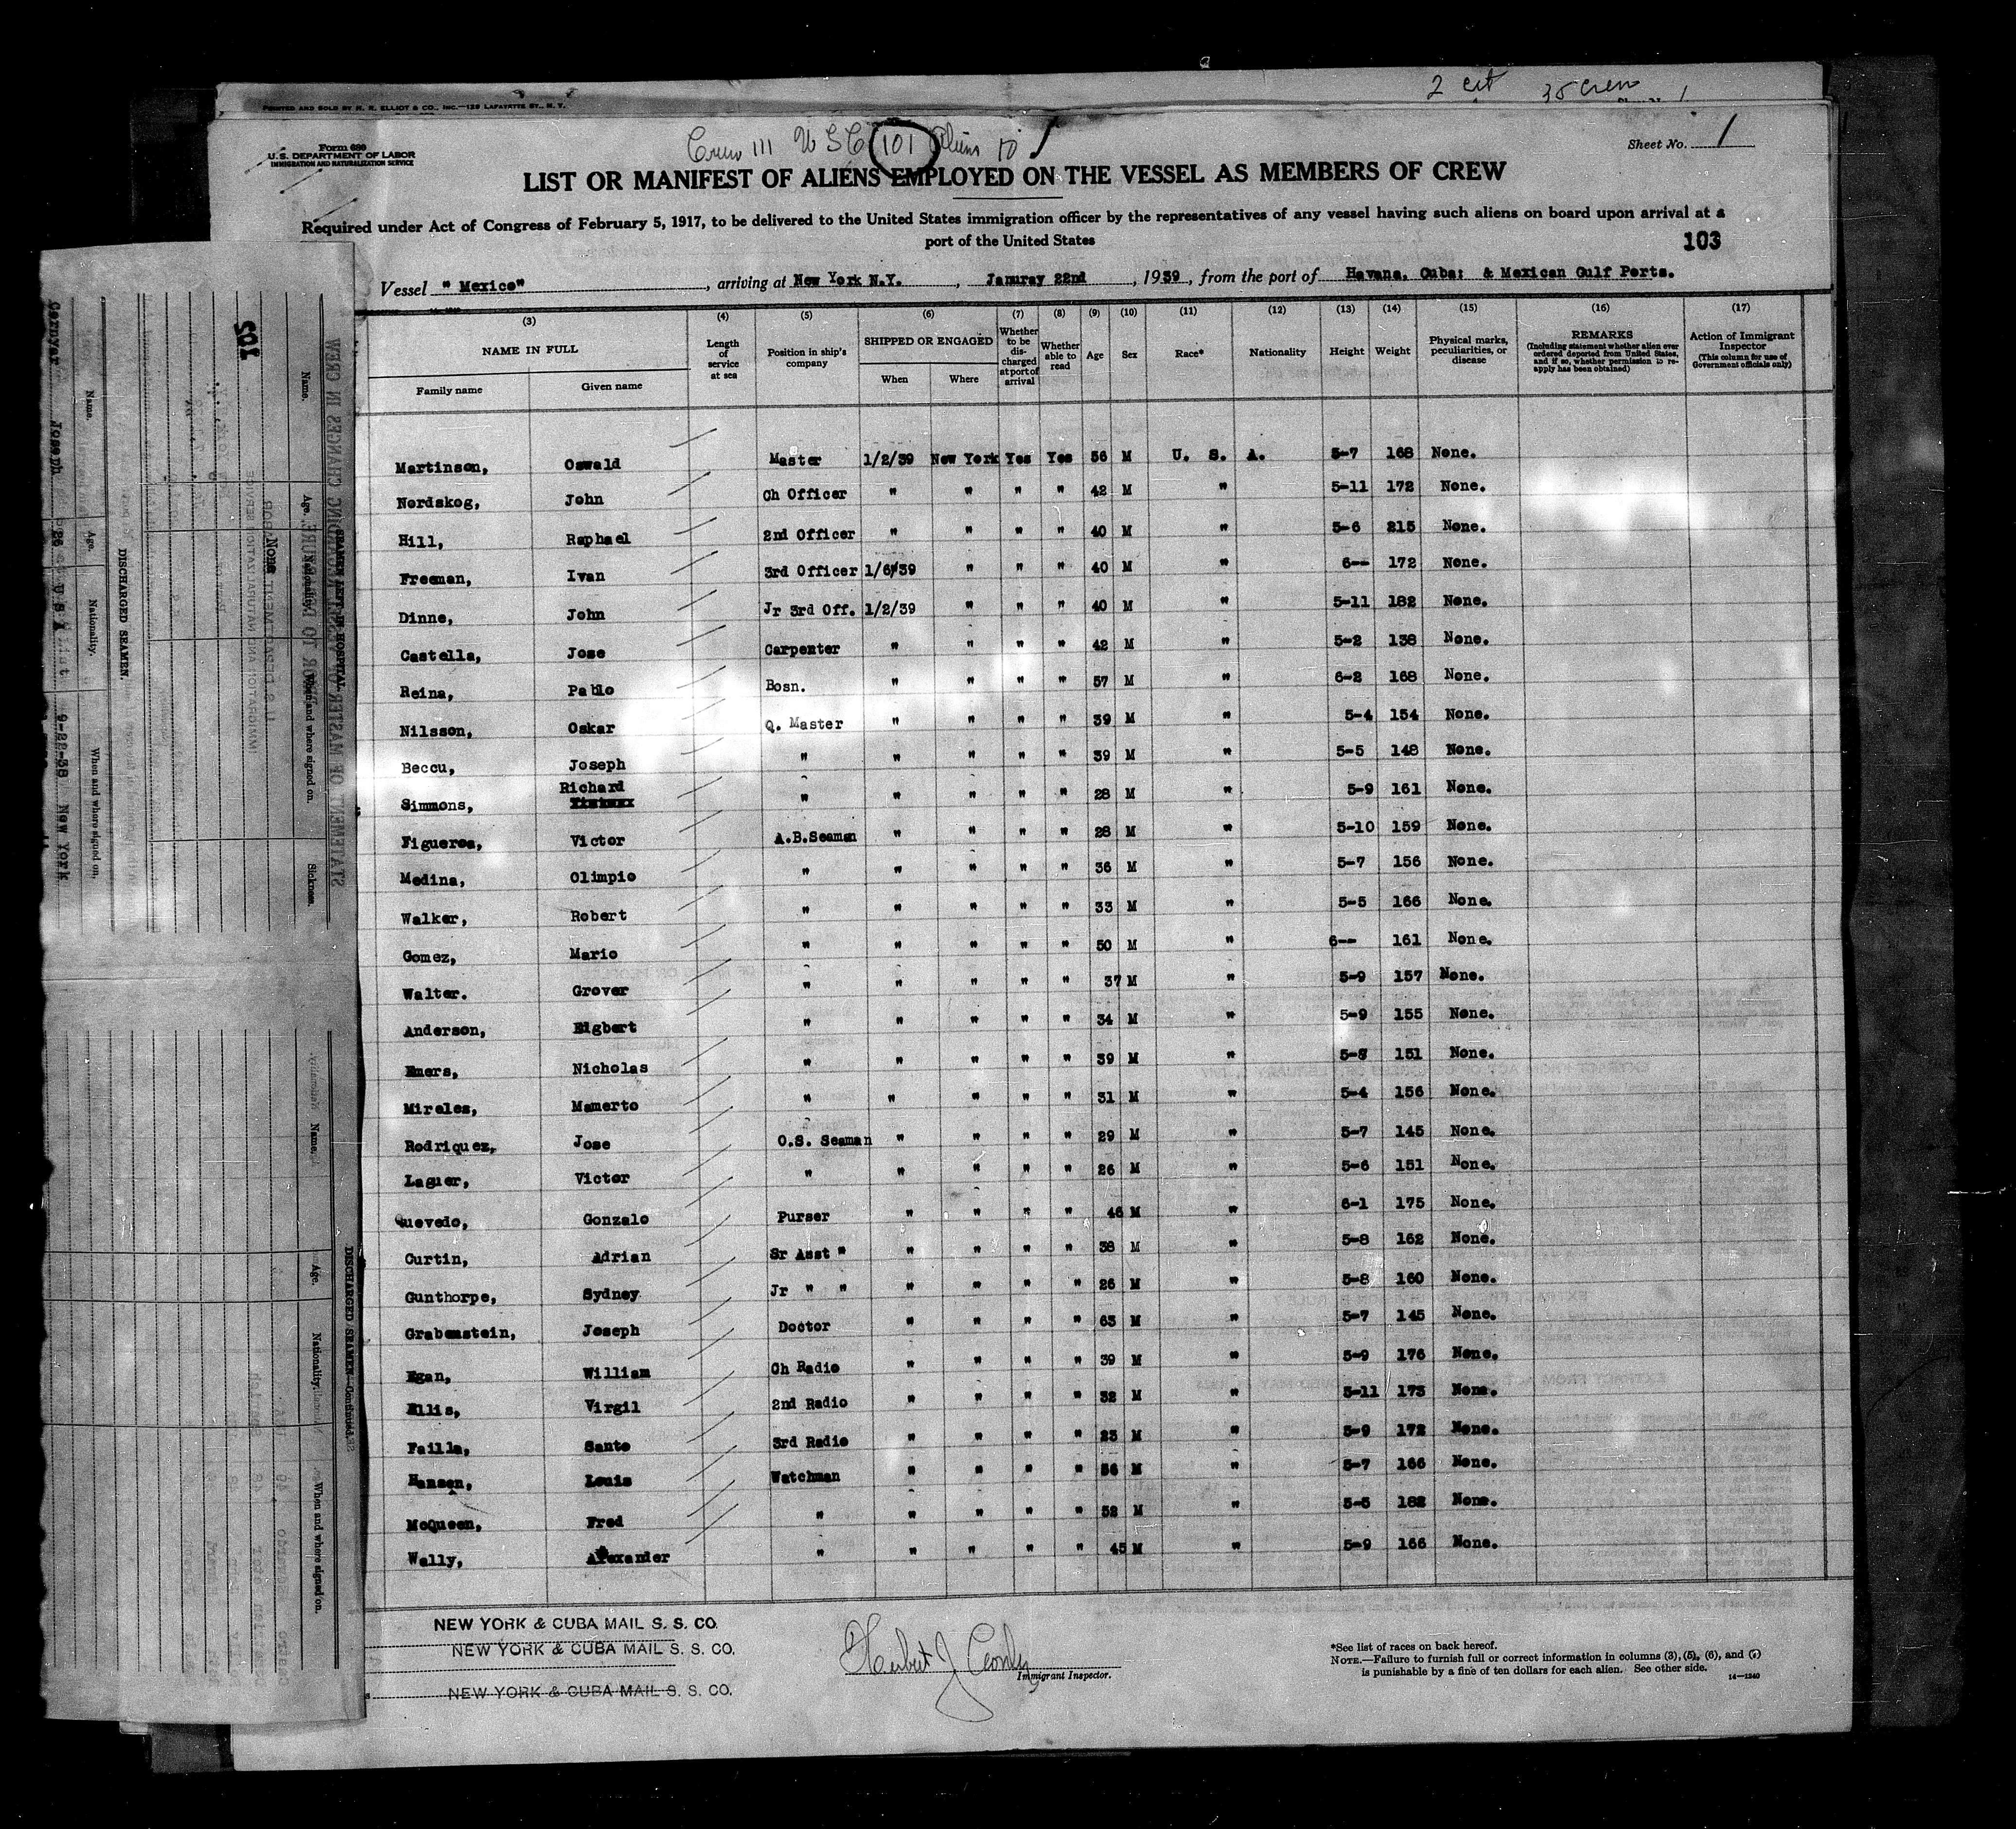 PRINTED AND SOLD BY H. R. ELLIOT & CO., INC.—129 LAFAYETTE ST., N. Y.
2 cit 35 crew 1
Form 680
U. S. DEPARTMENT OF LABOR
IMMIGRATION AND NATURALIZATION SERVICE
Crew 111 U S C 101 Aliens 10
Sheet No. 1
LIST OR MANIFEST OF ALIENS EMPLOYED ON THE VESSEL AS MEMBERS OF CREW
Required under Act of Congress of February 5, 1917, to be delivered to the United States immigration officer by the representatives of any vessel having such aliens on board upon arrival at a
port of the United States
103
Vessel "Mexico", arriving at New York N.Y., Januray 22nd, 1939, from the port of Havana, Cuba: & Mexican Gulf Ports.
(3) (4) (5) (6) (7) (8) (9) (10) (11) (12) (13) (14) (15) (16) (17)
NAME IN FULL
Family name Given name
Length of service at sea
Position in ship's company
SHIPPED OR ENGAGED
When Where
Whether to be discharged at port of arrival
Whether able to read
Age
Sex
Race*
Nationality
Height
Weight
Physical marks, peculiarities, or disease
REMARKS
(Including statement whether alien ever ordered deported from United States, and if so, whether permission to reapply has been obtained)
Action of Immigrant Inspector
(This column for use of Government officials only)
Martinson, Oswald Master 1/2/39 New York Yes Yes 56 M U. S. A. 5-7 168 None.
Nordskog, John Ch Officer " " " " 42 M " 5-11 172 None.
Hill, Raphael 2nd Officer " " " " 40 M " 5-6 215 None.
Freeman, Ivan 3rd Officer 1/6/39 " " " 40 M " 6-- 172 None.
Dinne, John Jr 3rd Off. 1/2/39 " " " 40 M " 5-11 182 None.
Castella, Jose Carpenter " " " " 42 M " 5-2 138 None.
Reina, Pablo Bosn. " " " " 57 M " 6-2 168 None.
Nilsson, Oskar Q. Master " " " " 39 M " 5-4 154 None.
Beccu, Joseph " " " " " 39 M " 5-5 148 None.
Simmons, Richard " " " " " 28 M " 5-9 161 None.
Figueroa, Victor A.B.Seaman " " " " 28 M " 5-10 159 None.
Medina, Olimpio " " " " " 36 M " 5-7 156 None.
Walker, Robert " " " " " 33 M " 5-5 166 None.
Gomez, Mario " " " " " 50 M " 6-- 161 None.
Walter. Grover " " " " " 37 M " 5-9 157 None.
Anderson, Elgbert " " " " " 34 M " 5-9 155 None.
Emers, Nicholas " " " " " 39 M " 5-8 151 None.
Mireles, Mamerto " " " " " 31 M " 5-4 156 None.
Rodriquez, Jose O.S. Seaman " " " " 29 M " 5-7 145 None.
Laguer, Victor " " " " " 26 M " 5-6 151 None.
Quevedo, Gonzalo Purser " " " " 46 M " 6-1 175 None.
Curtin, Adrian Sr Asst " " " " " 38 M " 5-8 162 None.
Gunthorpe, Sydney Jr " " " " " " 26 M " 5-8 160 None.
Grabenstein, Joseph Doctor " " " " 63 M " 5-7 145 None.
Egan, William Ch Radio " " " " 39 M " 5-9 176 None.
Ellis, Virgil 2nd Radio " " " " 32 M " 5-11 173 None.
Failla, Sante 3rd Radio " " " " 23 M " 5-9 172 None.
Hansen, Louis Watchman " " " " 56 M " 5-7 166 None.
McQueen, Fred " " " " " 52 M " 5-5 182 None.
Wally, Alexander " " " " " 45 M " 5-9 166 None.
NEW YORK & CUBA MAIL S. S. CO.
NEW YORK & CUBA MAIL S. S. CO.
NEW YORK & CUBA MAIL S. S. CO.
Immigrant Inspector.
*See list of races on back hereof.
NOTE.—Failure to furnish full or correct information in columns (3), (5), (6), and (7)
is punishable by a fine of ten dollars for each alien. See other side.
14—1240
102
STATEMENT OF MASTER OF VESSEL REGARDING CHANGES IN CREW
PRIOR TO DEPARTURE
SEAMEN LEFT IN HOSPITAL
Name. Age. Nationality. When and where signed on. Sickness.
None
U. S. DEPARTMENT OF LABOR
IMMIGRATION AND NATURALIZATION SERVICE
DISCHARGED SEAMEN.
Name. Age. Nationality. When and where signed on.
Joseph 26 U S A 9-22-38 New York
DISCHARGED SEAMEN—Continued.
Name. Age. Nationality. When and where signed on.